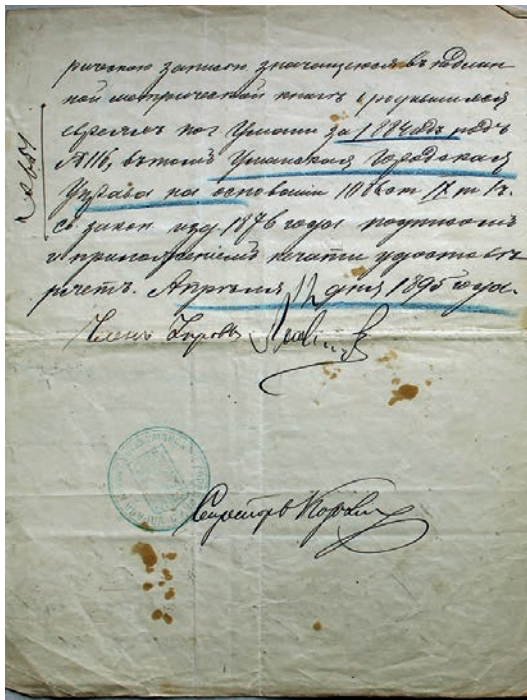 рическою записью значащеюся въ подлин
ной метрической книгѣ о родившихся
евреямъ по г Умани за 1884 годъ подъ
№ 116, въ томъ Уманская Городская
Управа на основаніи ст IX т
св. закон. изд. 1876 года подписомъ
и приложеніемъ печати удостовѣ
ряетъ. Апрѣля 12 дня 1895 года.
Членъ Управы
Секретарь